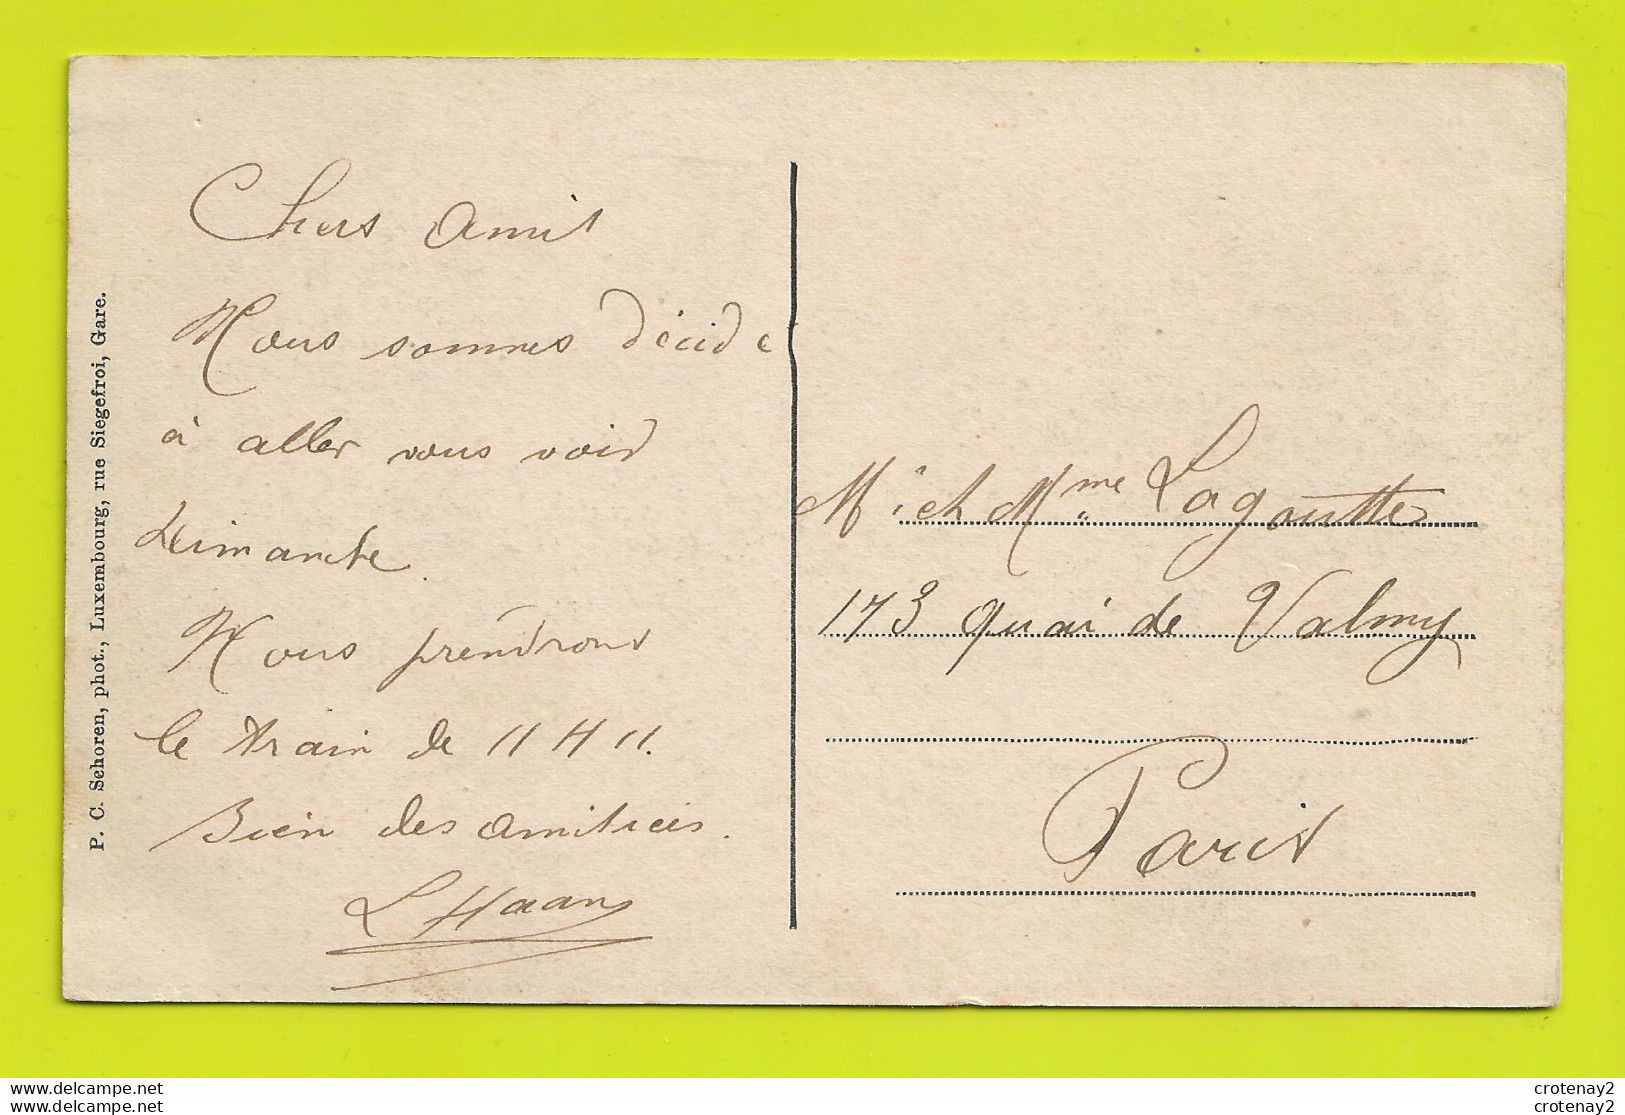 P. C. Schoren, phot., Luxembourg, rue Siegefroi, Gare.
Chers Amis
Nous sommes décidé
à aller vous voir
Dimanche.
Nous prendrons
le train de 11 H 11.
Bien des amitiées.
L Haan
M. et Mme Lagoutte
173 Quai de Valmy
Paris
www.delcampe.net
www.delcampe.net
crotenay2
crotenay2